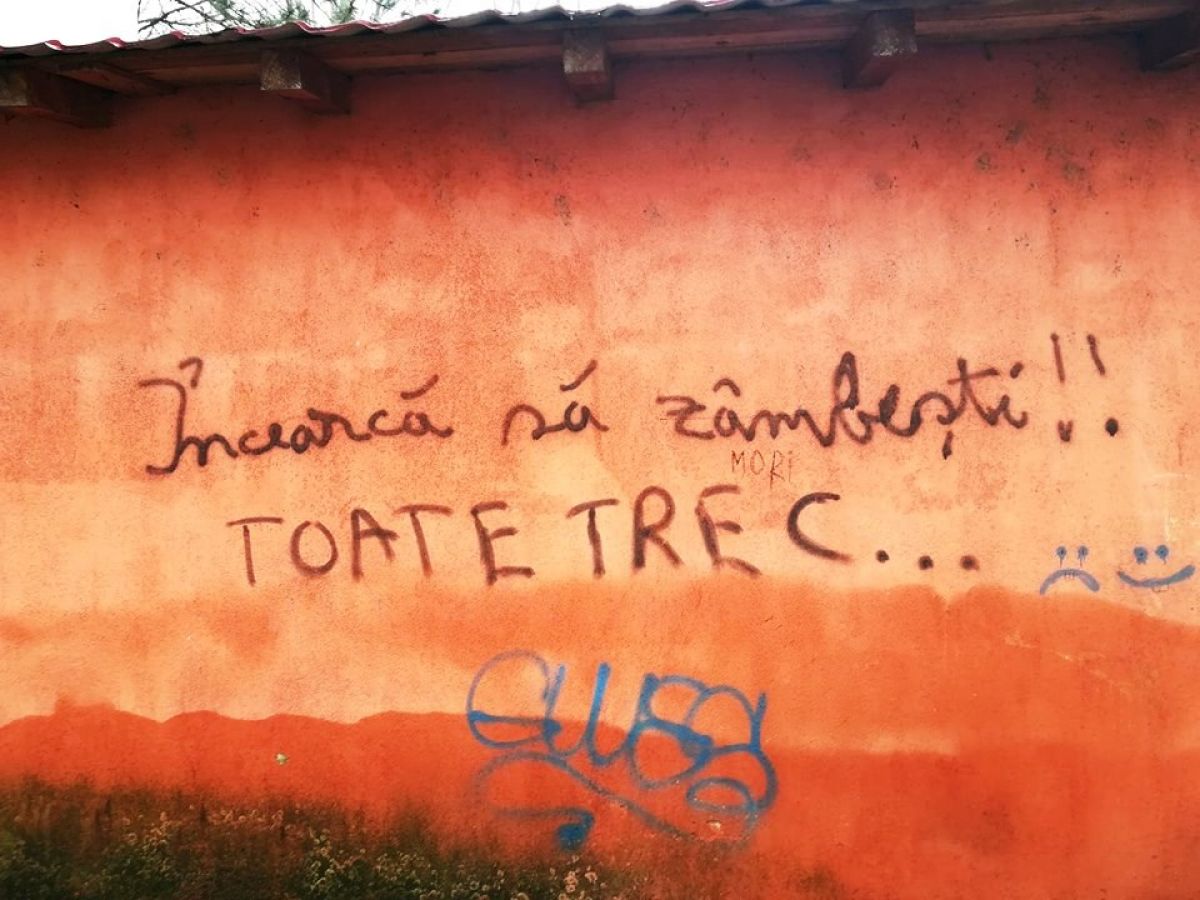 Încearcă să zâmbești!!
MORI
TOATE TREC...